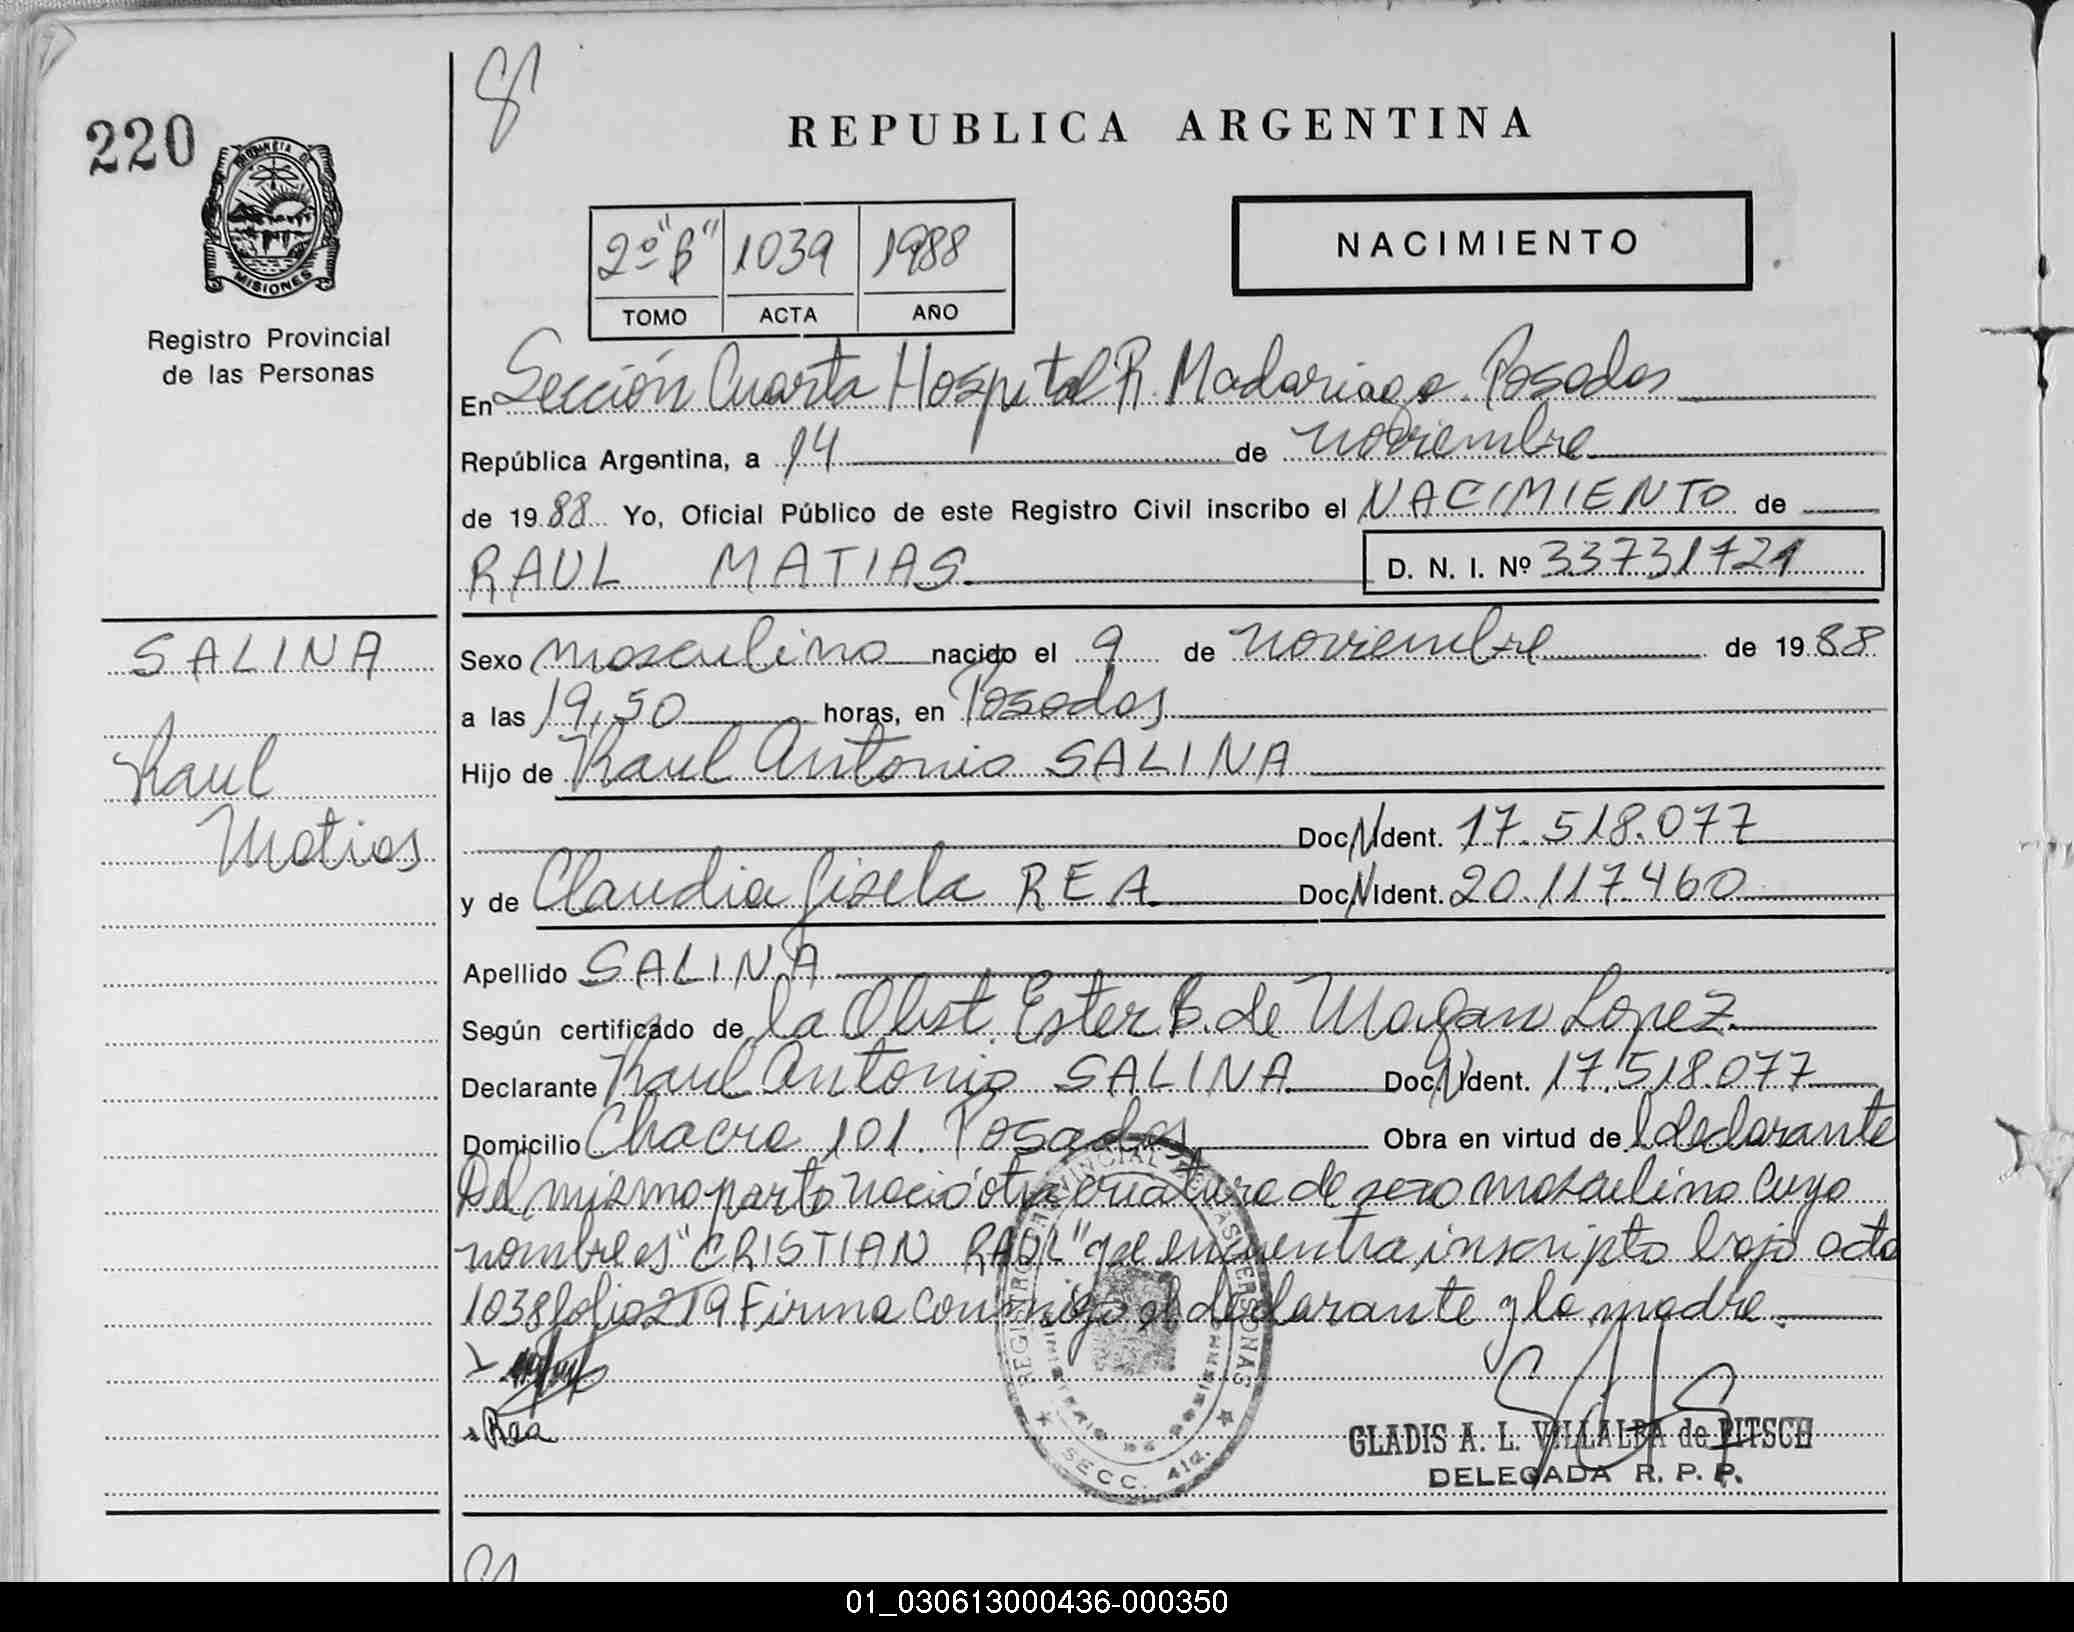 220
REPUBLICA ARGENTINA
PROVINCIA DE
MISIONES
Registro Provincial
de las Personas
2º "B" 1039 1988
TOMO ACTA AÑO
NACIMIENTO
En Sección Cuarta Hospital R. Madariaga. Posadas
República Argentina, a 14 de noviembre
de 1988 Yo, Oficial Público de este Registro Civil inscribo el NACIMIENTO de
RAUL MATIAS D. N. I. Nº 33731721
SALINA
Raul
Matias
Sexo masculino nacido el 9 de noviembre de 1988
a las 19,50 horas, en Posadas
Hijo de Raul Antonio SALINA
Doc. N. Ident. 17.518.077
y de Claudia Gisela REA Doc. N. Ident. 20.117.460
Apellido SALINA
Según certificado de la Obst. Ester B. de Lopez
Declarante Raul Antonio SALINA Doc. N. Ident. 17.518.077
Domicilio Chacra 101. Posadas Obra en virtud de l declarante
Del mismo parto nació otra criatura de sexo masculino cuyo
nombre es "CRISTIAN RAUL" q' se encuentra inscripto bajo acta
1038 folio 219 Firma conmigo el declarante y la madre.
Rea
REGISTRO PROVINCIAL DE LAS PERSONAS
SECC. 4ta.
GLADIS A. L. VILLALBA de PITSCH
DELEGADA R. P. P.
01_030613000436-000350